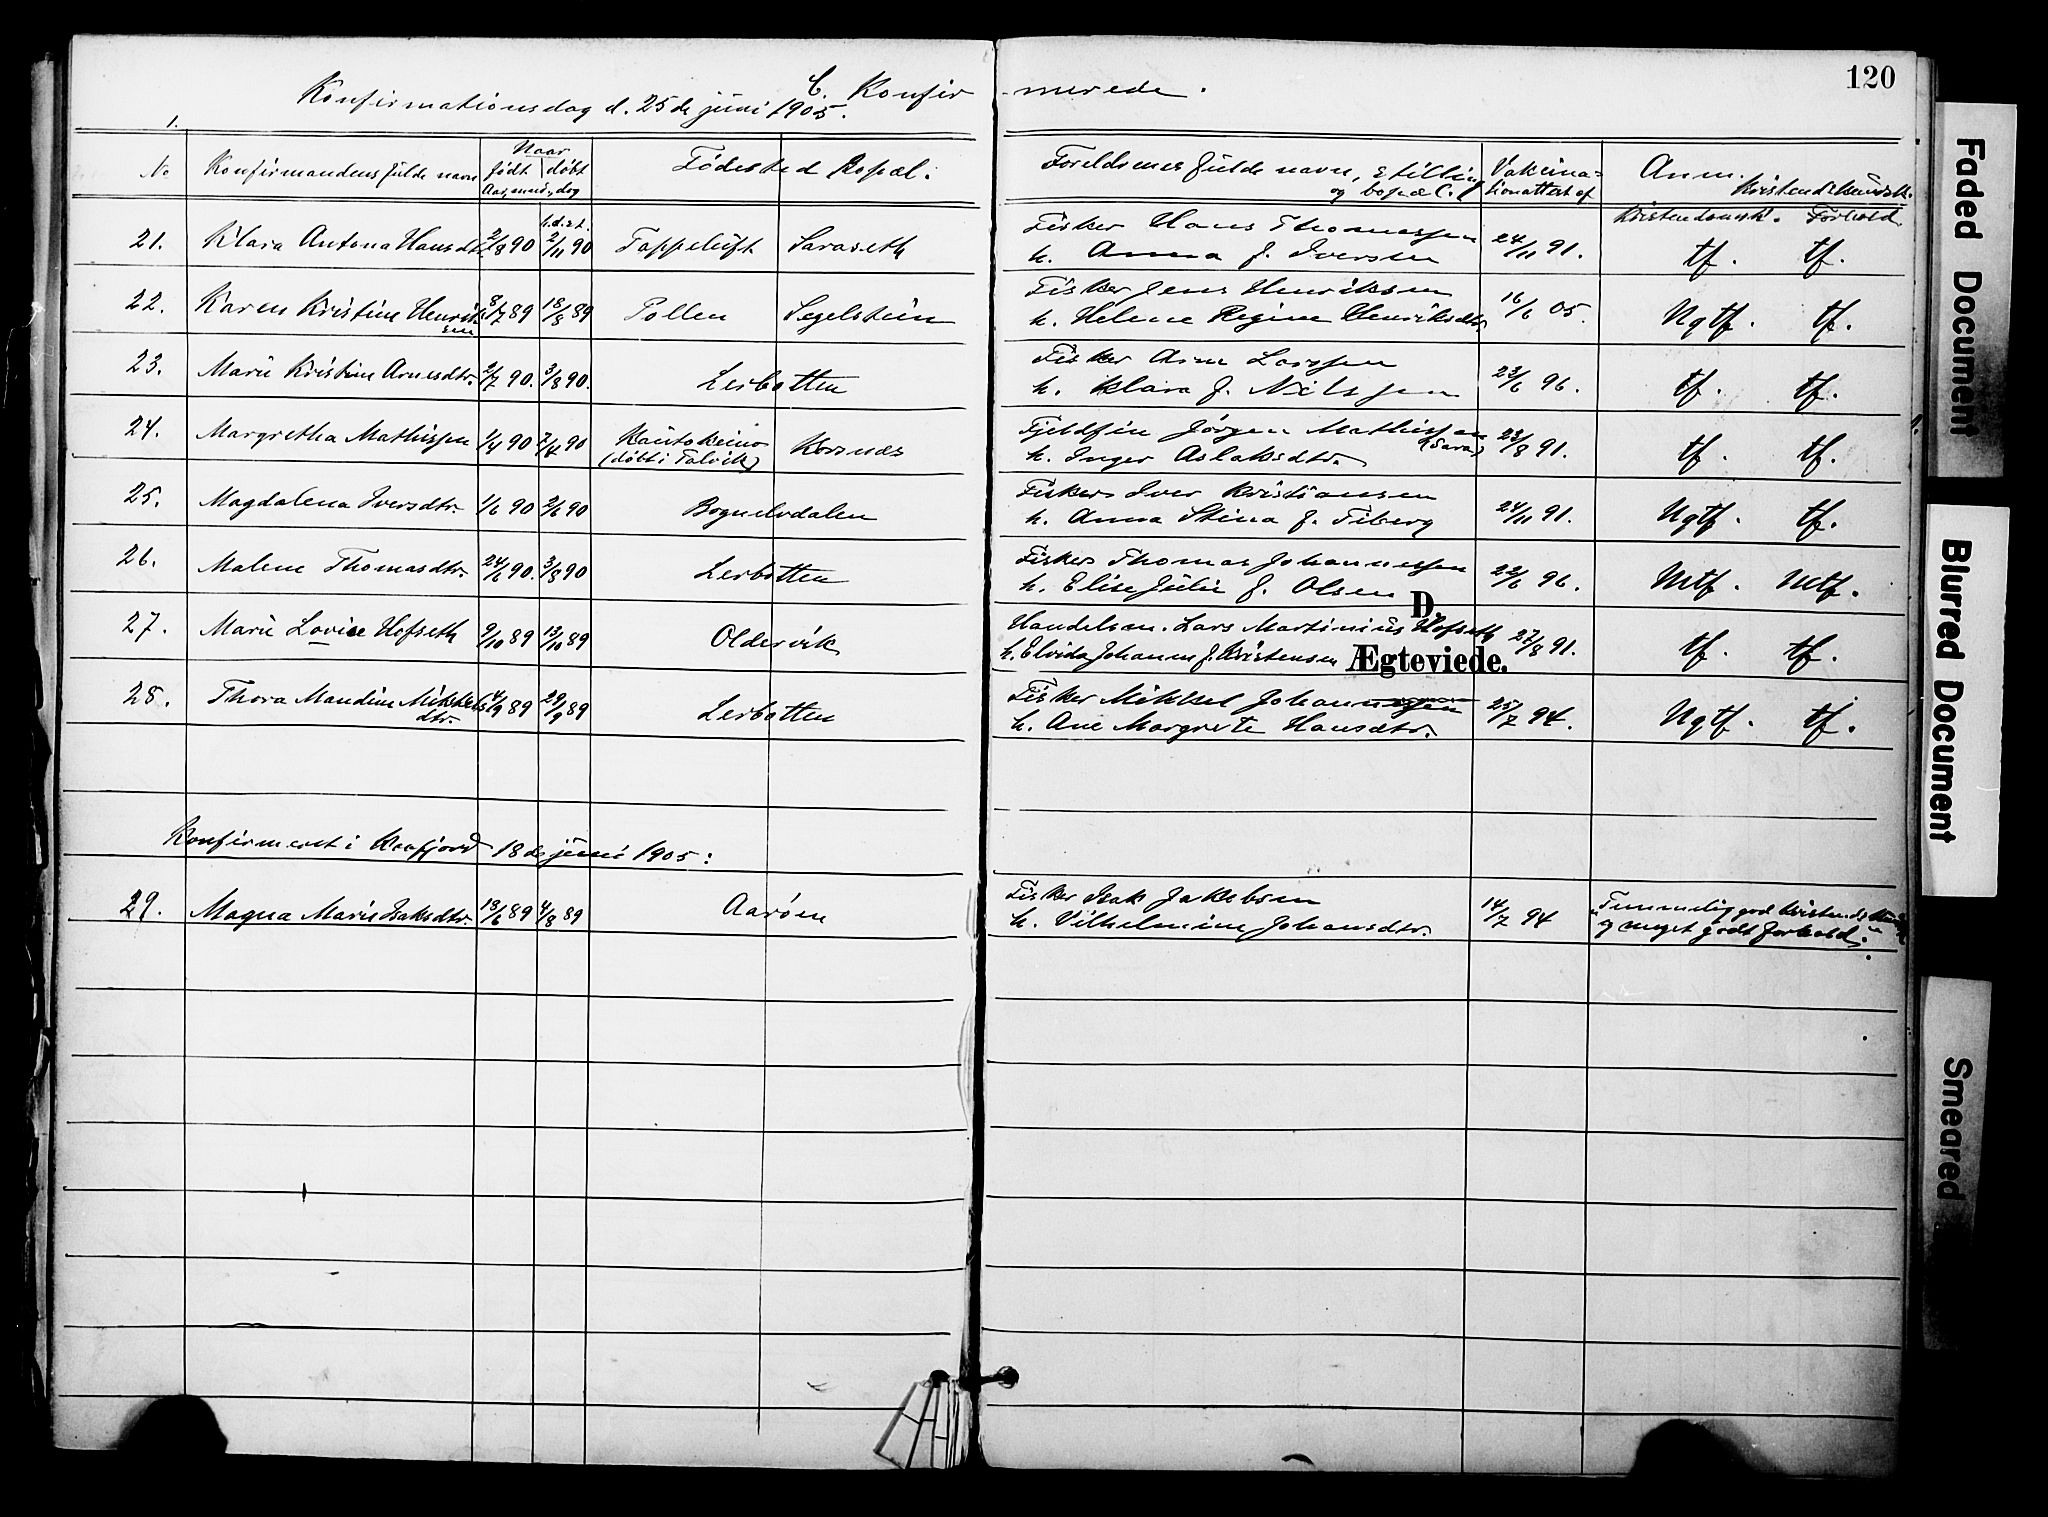 120
C. Konfirmerede.
Konfirmationsdag d. 25de juni 1905.
1.
No Konfirmandens fulde navn Naar født døbt Aar, mnd., dag Fødested Bopæl: Forældrenes fulde navn, stilling og bopæl. Vakcinationsattest af Anm. Kristendskundsk.
Kristendomsk. Forhold
21. Klara Antona Hansdtr. 2/8 90 2/11 90 Tappeluft Saraseth Fisker Hans Thomassen
h. Anna f. Iversen 24/11 91. tf. tf.
22. Karen Kristine Henriksen 8/7 89 18/8 89 Pollen Segelstein Fisker Jens Henriksen
h. Helene Regine Henriksdtr. 16/6 05. Ngtf. tf.
23. Marie Kristine Arnesdtr. 2/7 90. 3/8 90. Lerbotten Fisker Arne Larssen
h. Klara f. Nilssen 23/6 96. tf. tf.
24. Margretha Mathissen 1/4 90 7/4 90 Kautokeino (døbt i Talvik) Korsnæs Fjeldfin Jørgen Mathissen (Sara)
h. Inger Aslaksdtr. 23/8 91. tf. tf.
25. Magdalena Iversdtr. 1/6 90 2/6 90 Bognelvdalen Fisker Iver Kristiansen
h. Anna Stina f. Fiberg 24/11 91. Ngtf. tf.
26. Malene Thomasdtr. 24/6 90. 3/8 90 Lerbotten Fisker Thomas Johannessen
h. Elise Julie f. Olsen 22/6 96. Mtf. Mtf.
D.
27. Marie Lovise Hofseth 9/10 89 13/10 89 Oldervik Handelsm. Lars Martinius Hofseth
h. Elvida Johanna f. Kristensen 27/8 91. tf. tf.
Ægteviede.
28. Thora Mandine Mikkelsdtr. 4/9 89 29/9 89 Lerbotten Fisker Mikkel Johannessen
h. Ane Margrete Hansdtr. 25/7 94. Ngtf. tf.
Konfirmeret i Kaafjord 18de juni 1905:
29. Magna Marie Isaksdtr. 13/6 89 4/8 89 Aarøen Fisker Isak Jakobsen
h. Vilhelmine Johansdtr. 14/7 94 "Temmelig god Kristendskundsk
og meget godt forhold."
Faded Document
Blurred Document
Smeared